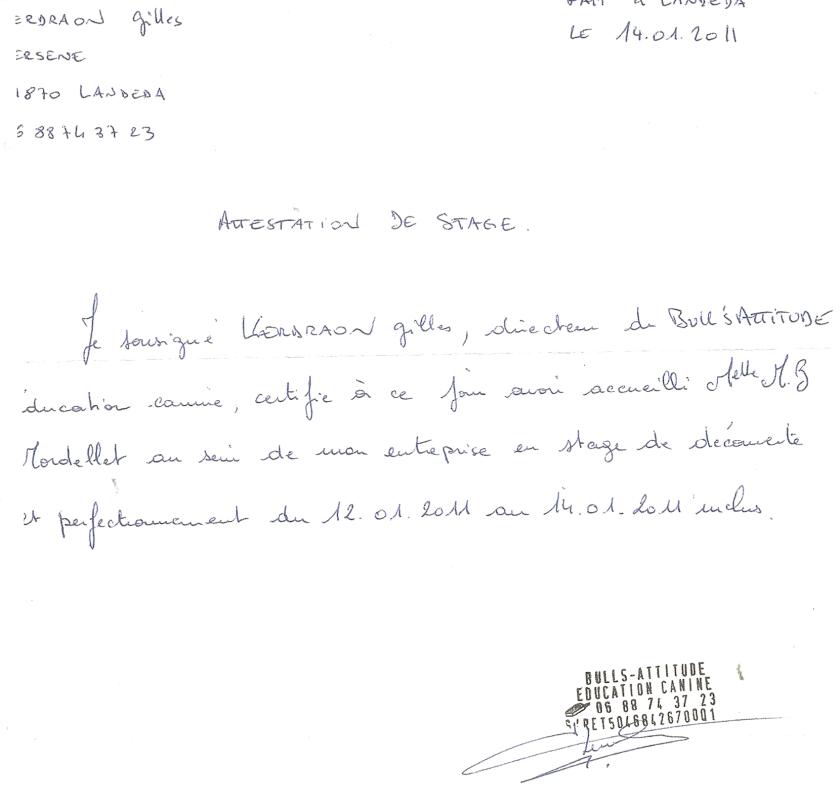 ERDRAON Gilles
FAIT A LANDEDA
LE 14.01.2011
ERSENE
1870 LANDEDA
6 88 74 37 23
ATTESTATION DE STAGE.
Je sousigné KERDRAON gilles, directeur de BULL'S ATTITUDE
éducation canine, certifie à ce foin avoir accueilli Melle M.G
Mordellet au sein de mon entreprise en stage de découverte
et perfectionnement du 12.01.2011 au 14.01.2011 inclus.
BULLS-ATTITUDE
EDUCATION CANINE
06 88 74 37 23
SIRET5046842670001